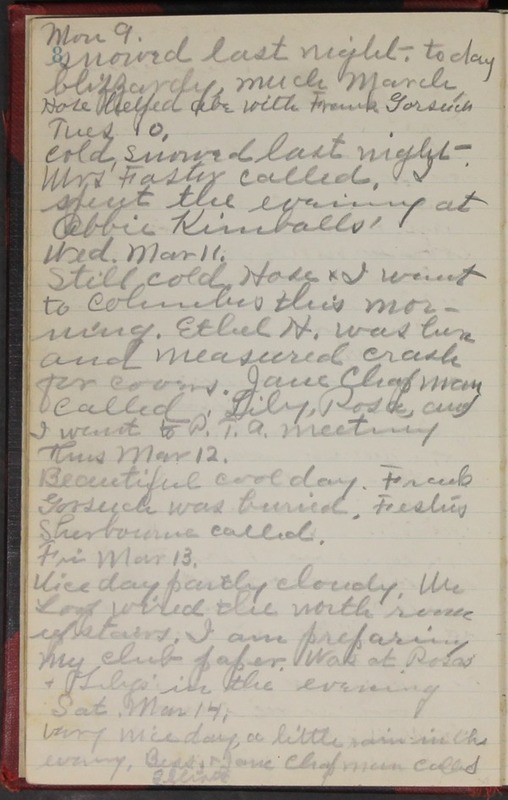 Mon 9.
8
snowed last night. today
blizzardy, much March,
Hose helped Abe with Frank Gorsuch
Tues 10,
cold, snowed last night.
Mrs Faster called, I
spent the evening at
Abbie Kimballs'
Wed. Mar 11.
Still cold Hose & I went
to Columbus this mor-
ning. Ethel H. was here
and measured crash
for covers. Jane Chapman
called, Lily, Rosa, and
I went to P. T. A. meeting
Thus Mar 12.
Beautiful cool day. Frank
Gorsuch was buried. Festus
Sherbourne called.
Fri Mar 13.
Nice day partly cloudy, Mr
wired the north room
upstairs. I am preparing
my club paper. Was at Rosas
+ Lilys' in the evening
Sat. Mar 14,
very nice day, a little rain in the
evening, Bess, & Jane Chapman called